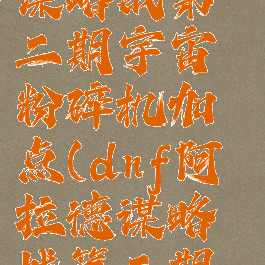 谋略战第
二期宇宙
粉碎机加
点(dnf阿
拉德谋略
战第二期